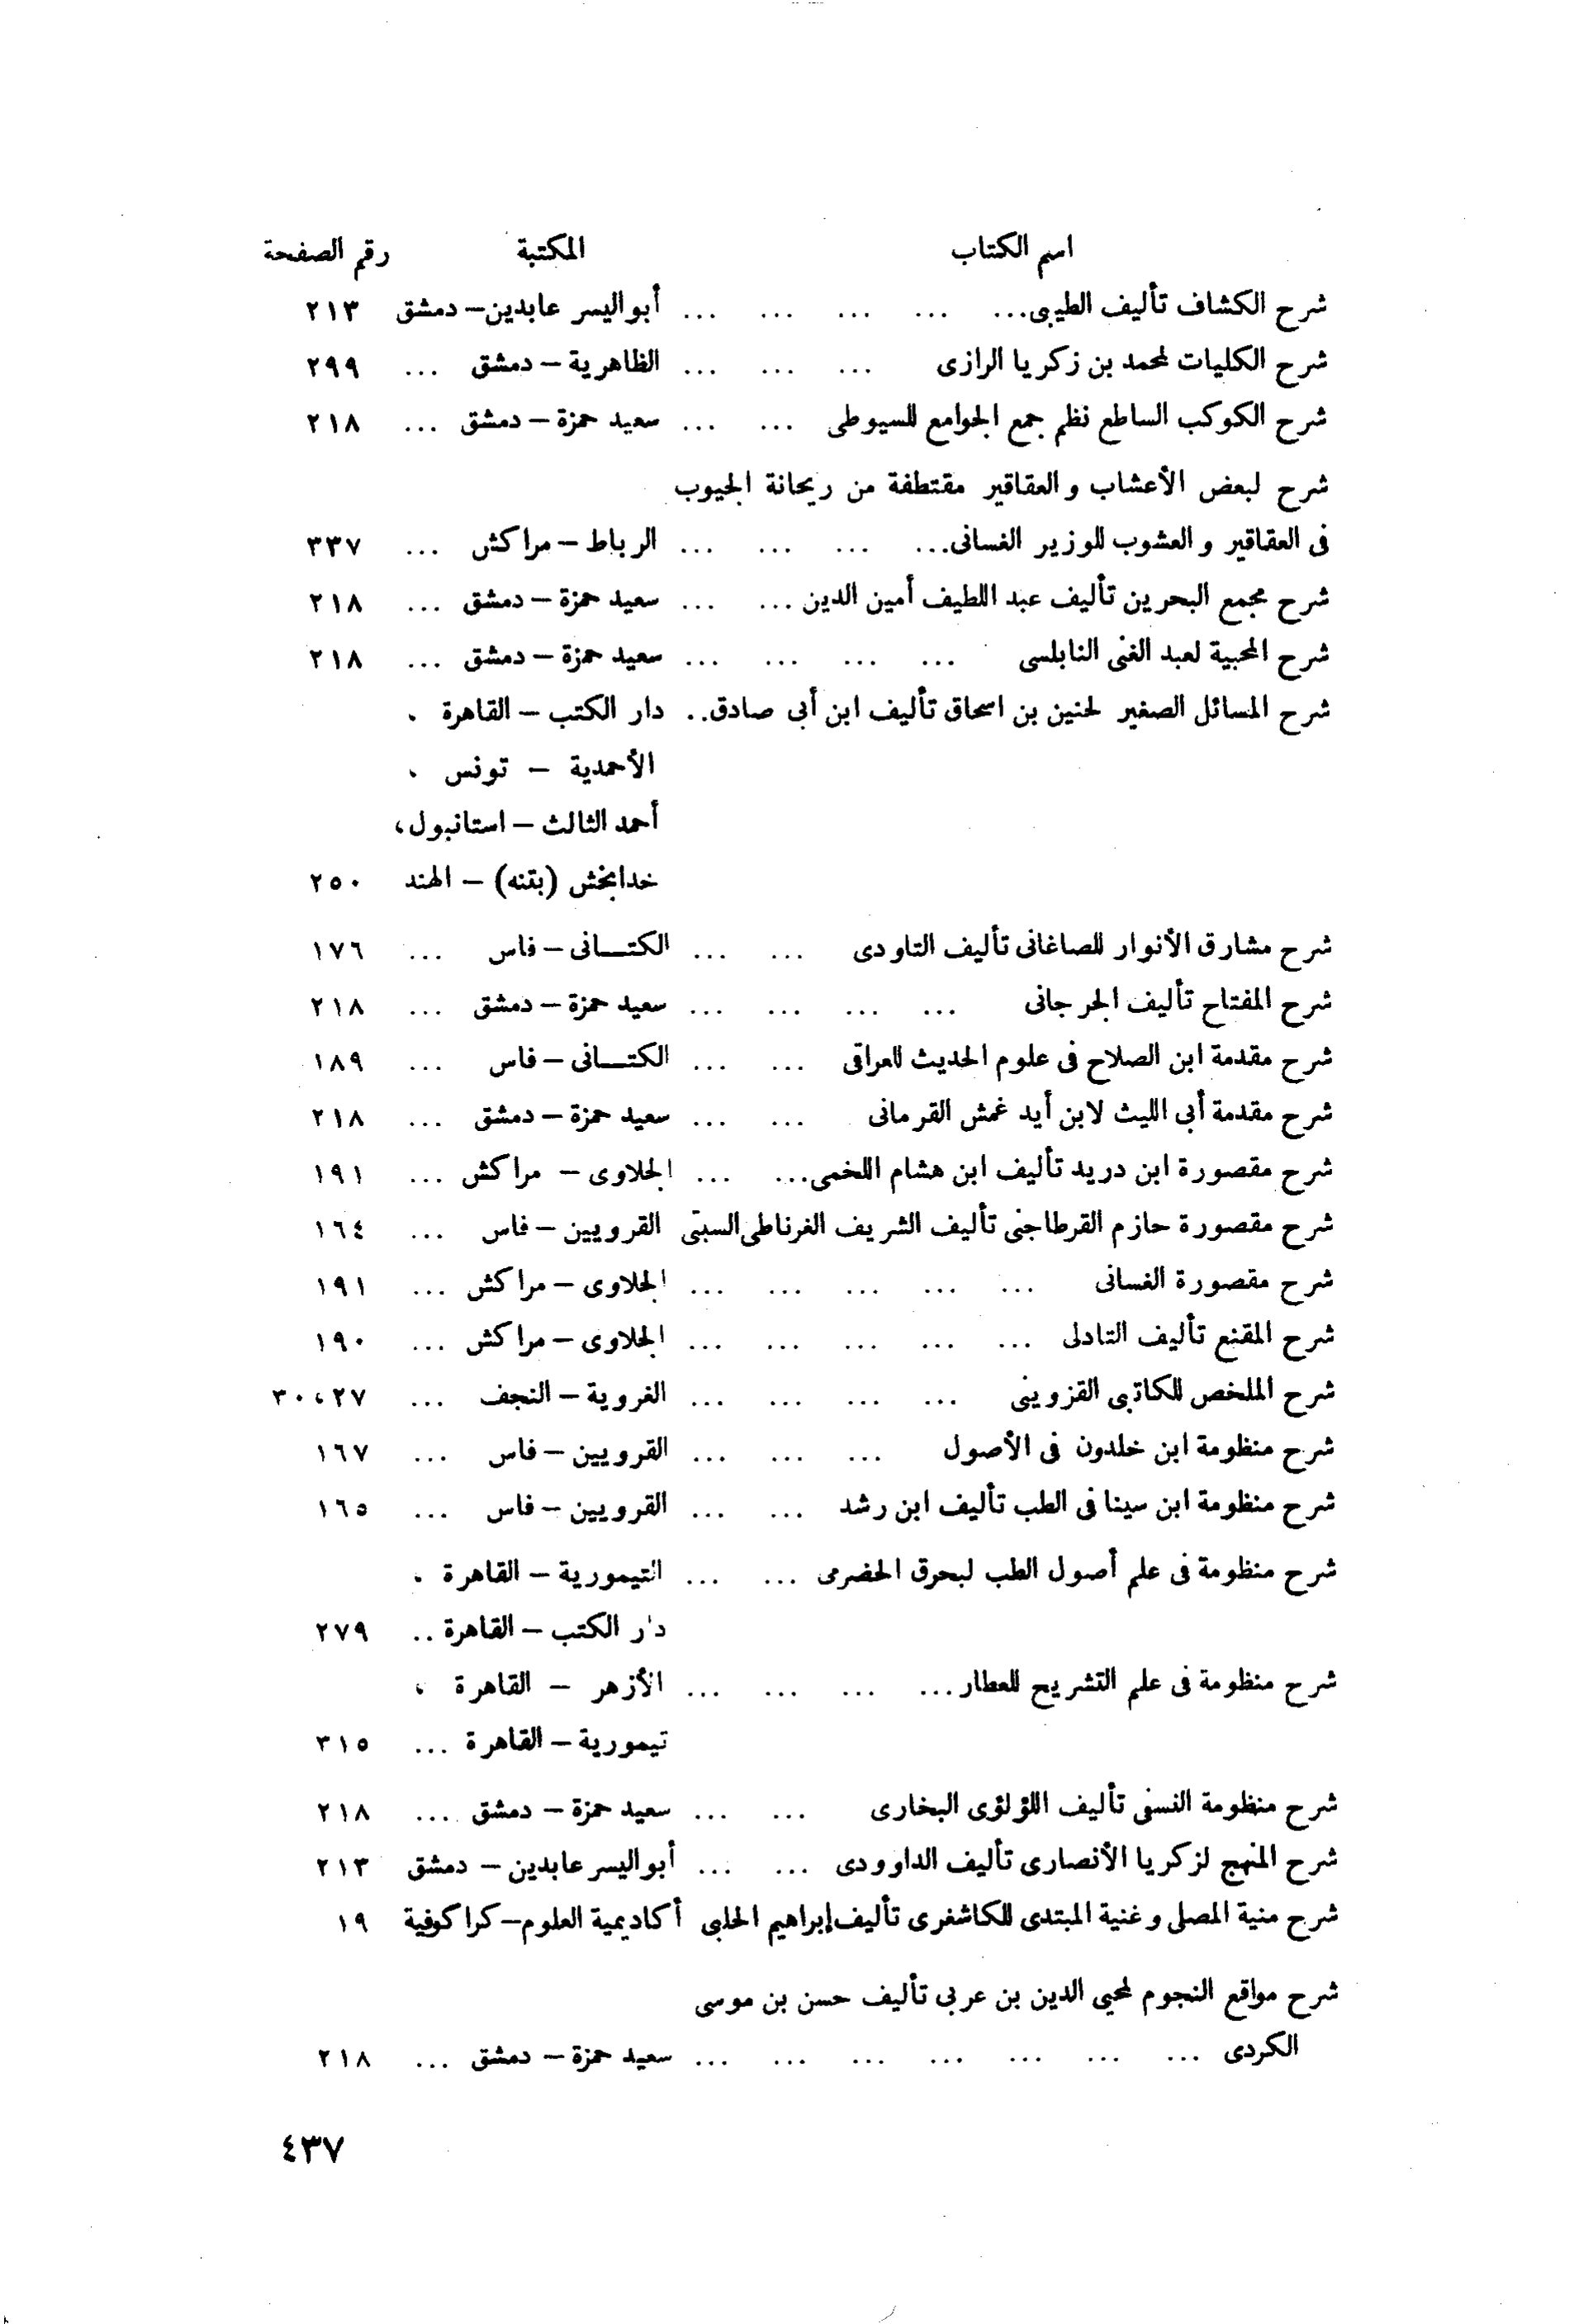 اسم الكتاب المكتبة رقم الصفحة
شرح الكشاف تأليف الطيبى... ... ... ... ... أبواليسر عابدين – دمشق ٢١٣
شرح الكليات لمحمد بن زكريا الرازى ... ... ... الظاهرية – دمشق ... ٢٩٩
شرح الكوكب الساطع نظم جمع الجوامع للسيوطى ... ... سعيد حمزة – دمشق ... ٢١٨
شرح لبعض الأعشاب والعقاقير مقتطفة من ريحانة الجيوب
فى العقاقير والعشوب للوزير الغسانى... ... ... ... الرباط – مراكش ... ٣٣٧
شرح مجمع البحرين تأليف عبد اللطيف أمين الدين ... ... سعيد حمزة – دمشق ... ٢١٨
شرح المحبية لعبد الغنى النابلسى ... ... ... ... سعيد حمزة – دمشق ... ٢١٨
شرح المسائل الصغير لحنين بن اسحاق تأليف ابن أبى صادق.. دار الكتب – القاهرة ،
الأحمدية – تونس ،
أحمد الثالث – استانبول،
خدابخش (بتنه) – الهند ٢٥٠
شرح مشارق الأنوار للصاغانى تأليف التاودى ... ... الكتــانى – فاس ... ١٧٦
شرح المفتاح تأليف الجرجانى ... ... ... ... سعيد حمزة – دمشق ... ٢١٨
شرح مقدمة ابن الصلاح فى علوم الحديث للعراقى ... ... الكتــانى – فاس ... ١٨٩
شرح مقدمة أبى الليث لابن أيد غمش القرمانى ... ... سعيد حمزة – دمشق ... ٢١٨
شرح مقصورة ابن دريد تأليف ابن هشام اللخمى... ... الجلاوى – مراكش ... ١٩١
شرح مقصورة حازم القرطاجنى تأليف الشريف الغرناطى السبتى القرويين – فاس ... ١٦٤
شرح مقصورة الغسانى ... ... ... ... ... الجلاوى – مراكش ... ١٩١
شرح المقنع تأليف التادلى ... ... ... ... ... الجلاوى – مراكش ... ١٩٠
شرح الملخص للكاتبى القزوينى ... ... ... ... الغروية – النجف ... ٢٧،٣٠
شرح منظومة ابن خلدون فى الأصول ... ... ... القرويين – فاس ... ١٦٧
شرح منظومة ابن سينا فى الطب تأليف ابن رشد ... ... القرويين – فاس ... ١٦٥
شرح منظومة فى علم أصول الطب لبحرق الحضرمى ... ... التيمورية – القاهرة ،
دار الكتب – القاهرة .. ٢٧٩
شرح منظومة فى علم التشريح للعطار... ... ... ... الأزهر – القاهرة ،
تيمورية – القاهرة ... ٣١٥
شرح منظومة النسفى تأليف اللؤلؤى البخارى ... ... سعيد حمزة – دمشق ... ٢١٨
شرح المنهج لزكريا الأنصارى تأليف الداوودى ... ... أبواليسر عابدين – دمشق ٢١٣
شرح منية المصلى وغنية المبتدى للكاشغرى تأليف إبراهيم الحلبى أكاديمية العلوم – كراكوفية ١٩
شرح مواقع النجوم لمحيى الدين بن عربى تأليف حسن بن موسى
الكردى ... ... ... ... ... ... ... سعيد حمزة – دمشق ... ٢١٨
٤٣٧